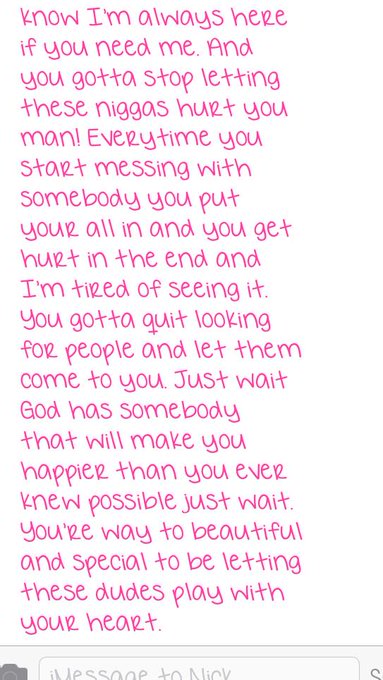 know I'm always here
if you need me. And
you gotta stop letting
these niggas hurt you
man! Everytime you
start messing with
somebody you put
your all in and you get
hurt in the end and
I'm tired of seeing it.
You gotta quit looking
for people and let them
come to you. Just wait
God has somebody
that will make you
happier than you ever
knew possible just wait.
You're way to beautiful
and special to be letting
these dudes play with
your heart.
iMessage to Nick
S